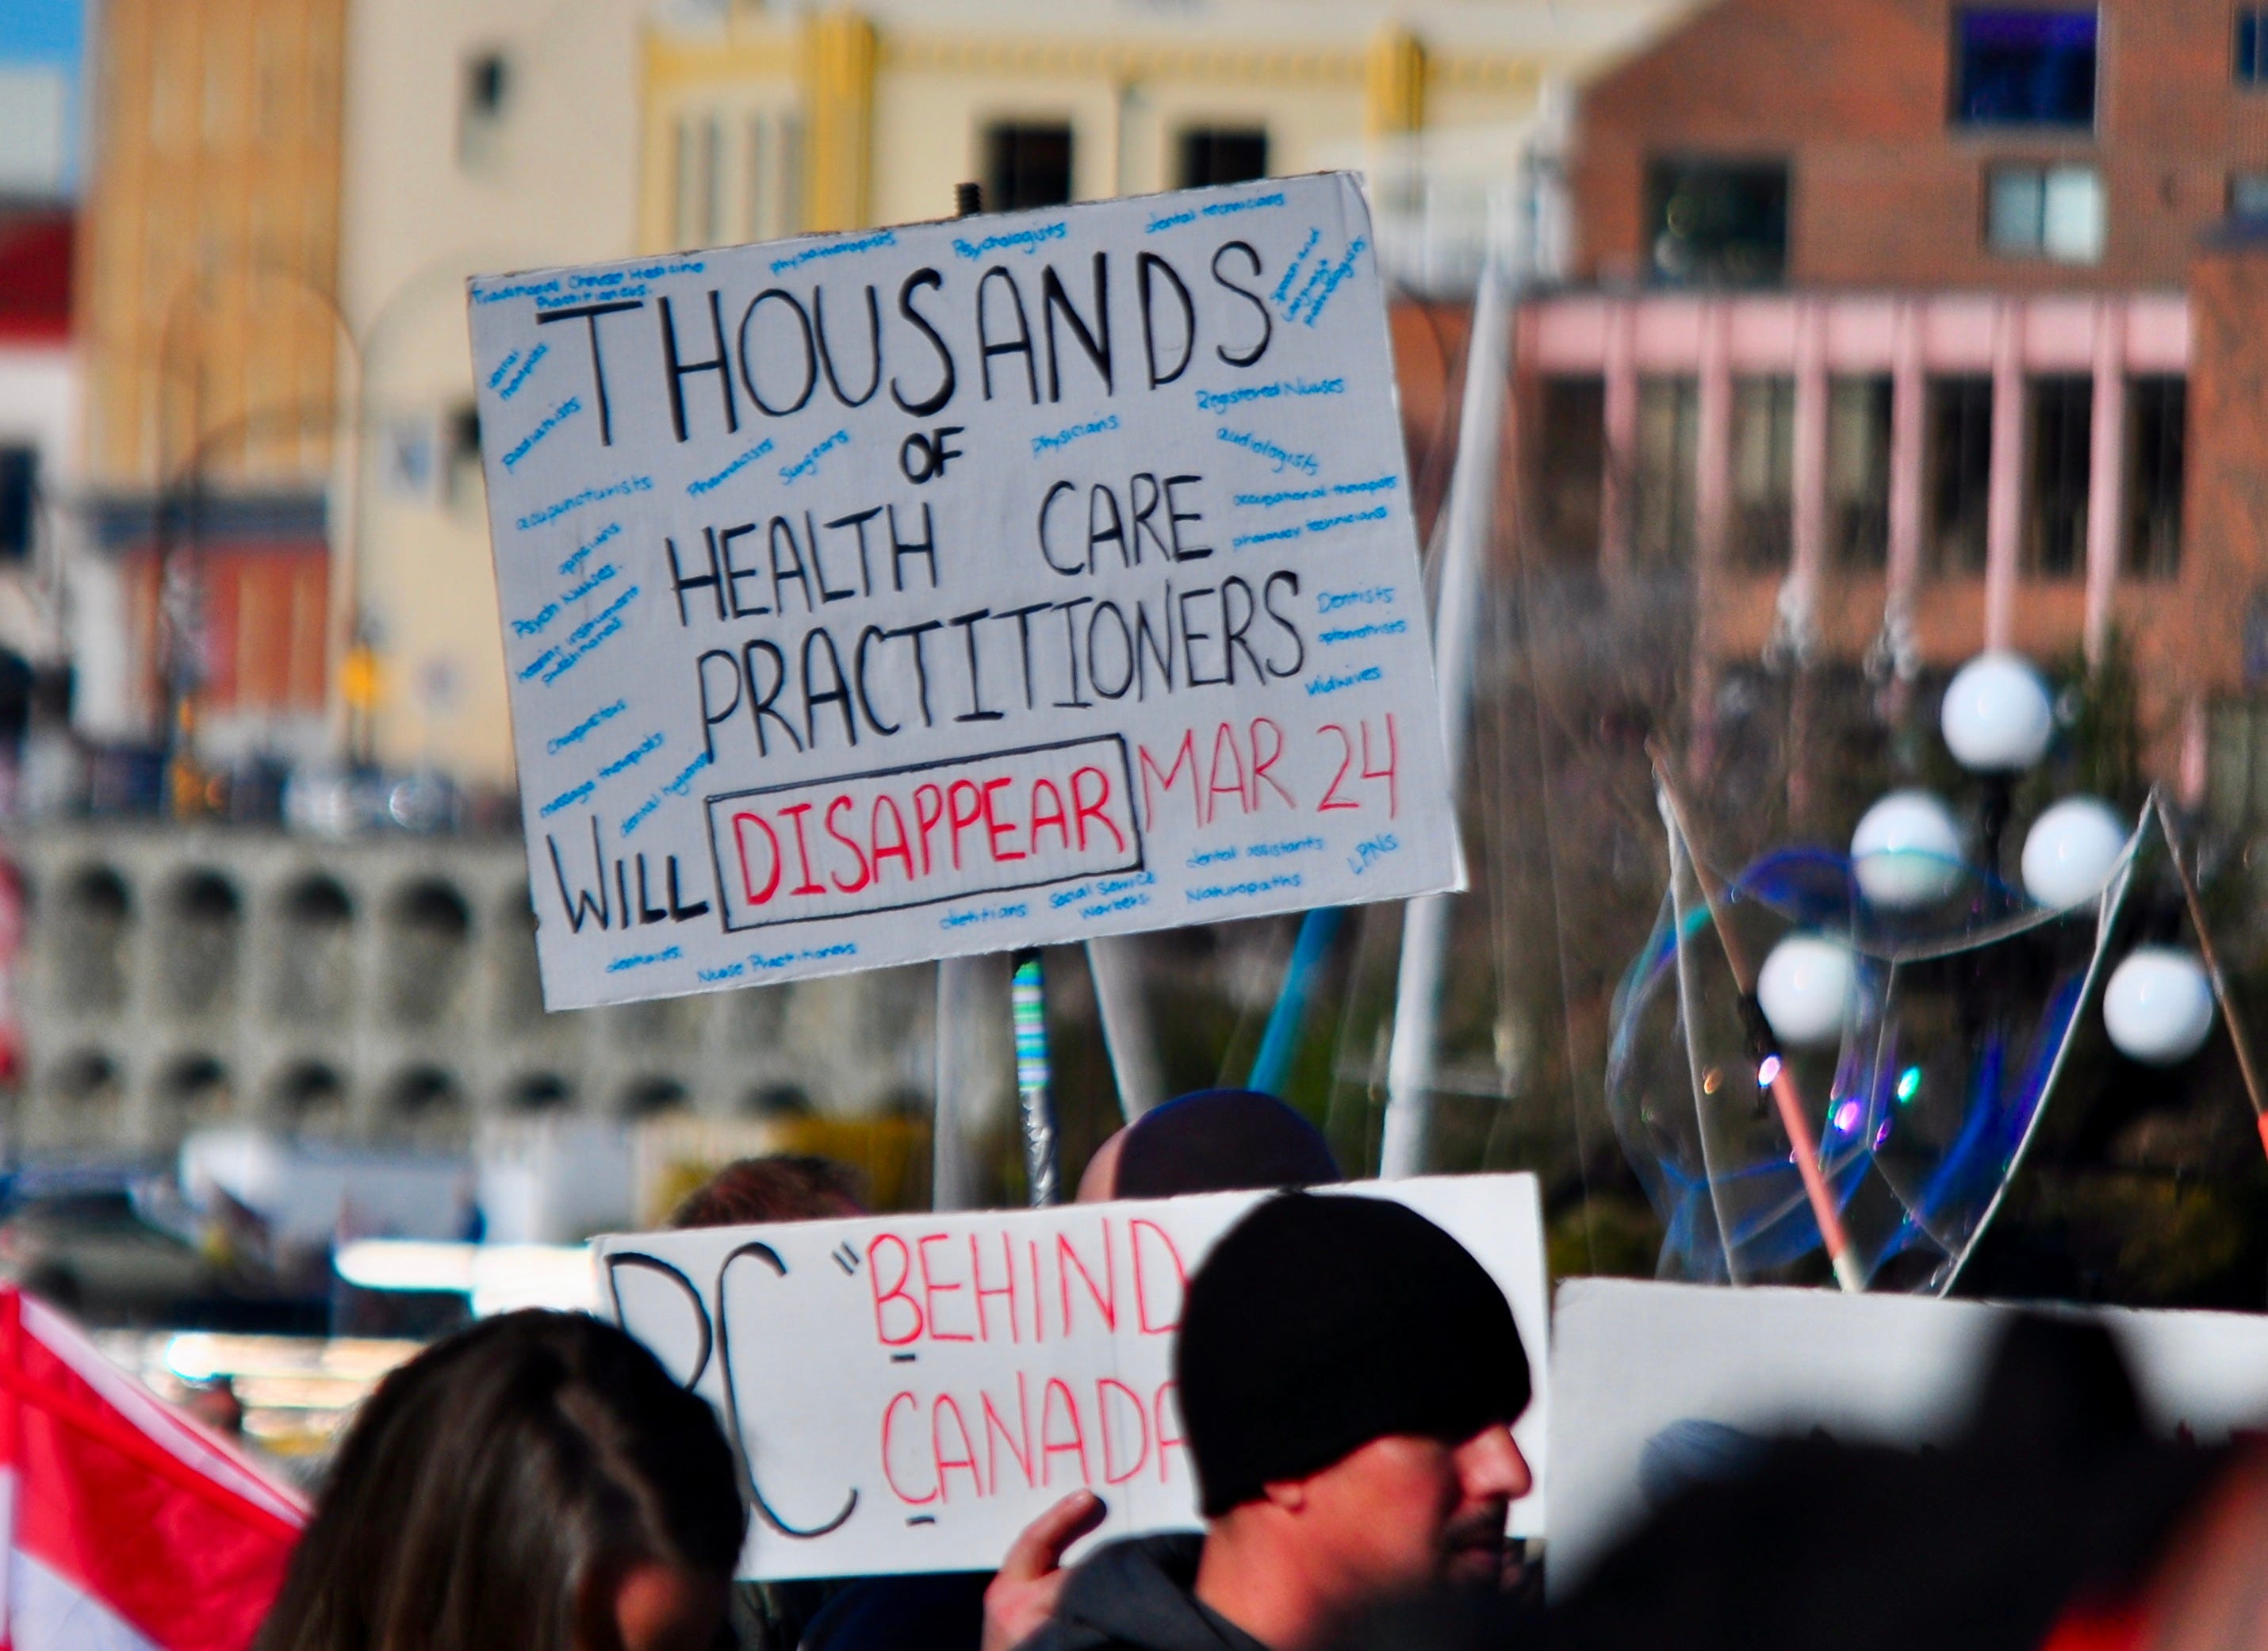 Traditional Chinese Medicine
Practitioners
physiotherapists
Psychologists
dental technicians
Speech and
Language
pathologists
THOUSANDS
podiatrists
Registered Nurses
OF
acupuncturists
Pharmacists
Surgeons
physicians
audiologists
HEALTH CARE
occupational therapists
pharmacy technicians
opticians
Psych Nurses
hearing instrument
practitioners
PRACTITIONERS
Dentists
optometrists
Midwives
Chiropractors
massage therapists
dental hygienists
WILL DISAPPEAR MAR 24
dental assistants
LPNs
dietitians
social service
workers
Naturopaths
denturists
Nurse Practitioners
BC "BEHIND
CANADA